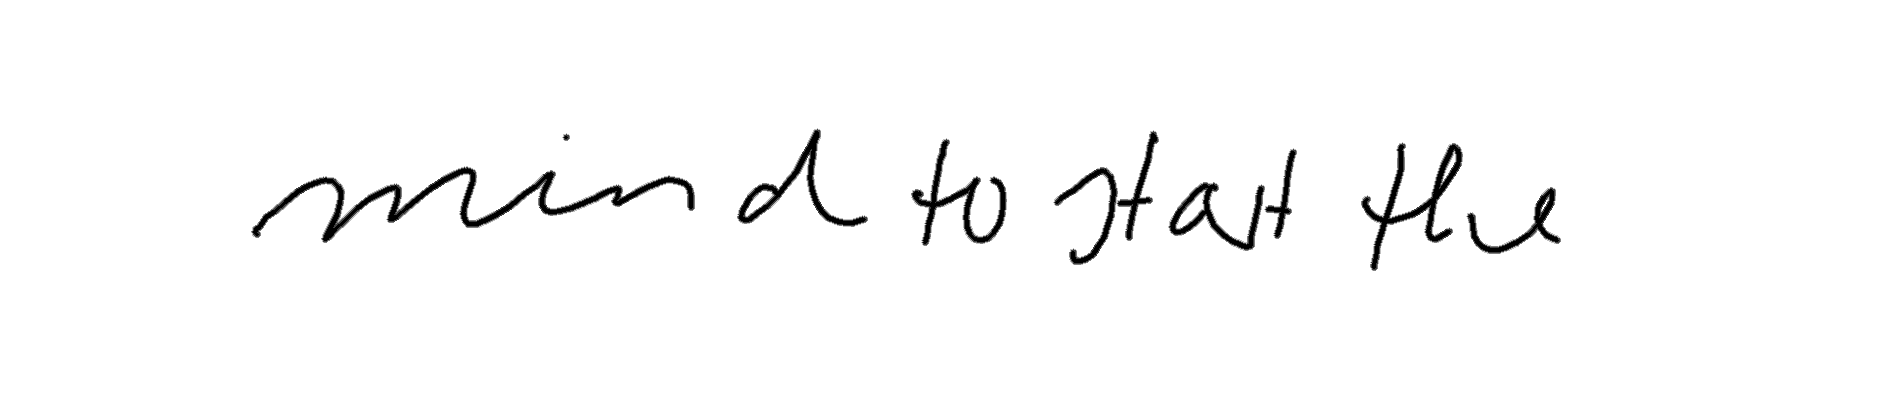 mind to start the